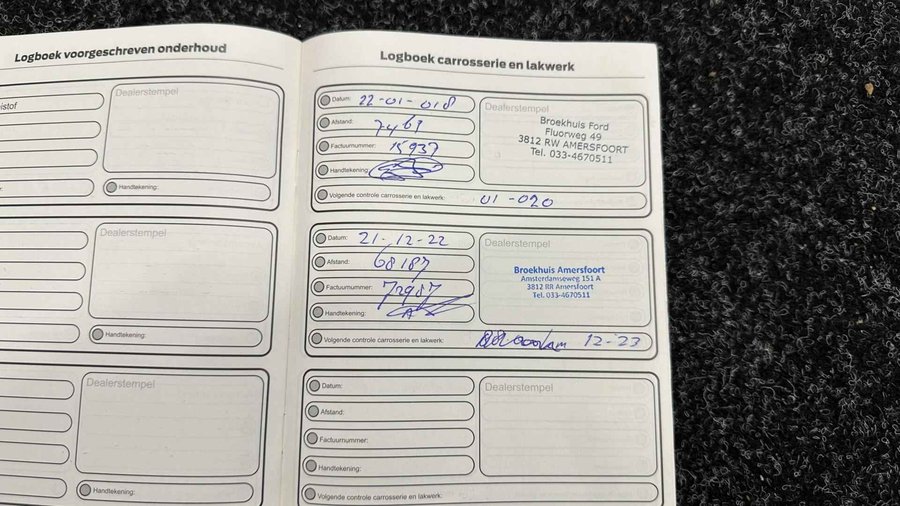 Logboek voorgeschreven onderhoud
Dealerstempel
Handtekening:
Dealerstempel
Handtekening:
Dealerstempel
Handtekening:
Logboek carrosserie en lakwerk
Datum: 22-01-018
Afstand: 7469
Factuurnummer: 15937
Handtekening:
Dealerstempel
Broekhuis Ford
Fluorweg 49
3812 RW AMERSFOORT
Tel. 033-4670511
Volgende controle carrosserie en lakwerk: 01-020
Datum: 21-12-22
Afstand: 68187
Factuurnummer: 72987
Handtekening:
Dealerstempel
Broekhuis Amersfoort
Amsterdamseweg 151 A
3812 RR Amersfoort
Tel. 033-4670511
Volgende controle carrosserie en lakwerk: 12-23
Datum:
Afstand:
Factuurnummer:
Handtekening:
Dealerstempel
Volgende controle carrosserie en lakwerk: